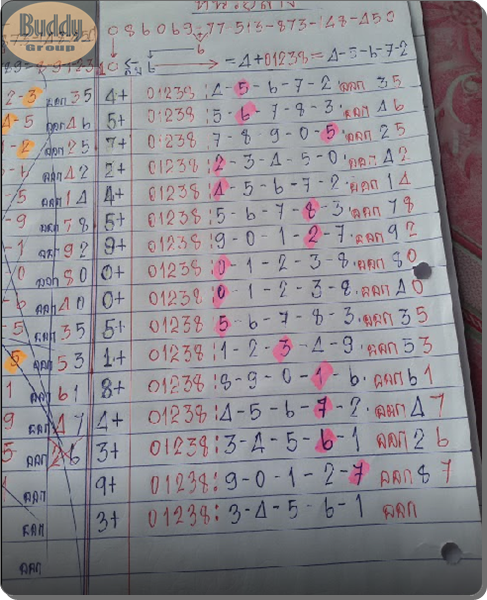 Buddy
Group
086069-77-513-873-148-450
6
= 4+01238 = 4-5-6-7-2
2-3 ออก 35 4+ 01238: 4-5-6-7-2. ออก 35
4-5 ออก 46 5+ 01238: 5-6-7-8-3. ออก 46
1-2 ออก 25 7+ 01238 7-8-9-0-5 ออก 25
ออก 42 2+ 01238: 2-3-4-5-0. ออก 42
-5 ออก 14 4+ 01238: 4-5-6-7-2. ออก 14
-9 ออก 78 5+ 01238: 5-6-7-8-3. ออก 78
-1 ออก 92 9+ 01238: 9-0-1-2-7. ออก 92
0 ออก 80 0+ 01238: 0-1-2-3-8. ออก 80
-6 ออก 40 0+ 01238: 0-1-2-3-8. ออก 40
-5 ออก 35 5+ 01238: 5-6-7-8-3. ออก 35
5 ออก 53 1+ 01238: 1-2-3-4-9. ออก 53
1 ออก 61 8+ 01238: 8-9-0-1-6. ออก 61
9 ออก 47 4+ 01238: 4-5-6-7-2. ออก 47
5 ออก 26 3+ 01238: 3-4-5-6-1 ออก 26
ออก 9+ 01238: 9-0-1-2-7 ออก 87
ออก 3+ 01238: 3-4-5-6-1 ออก
ออก